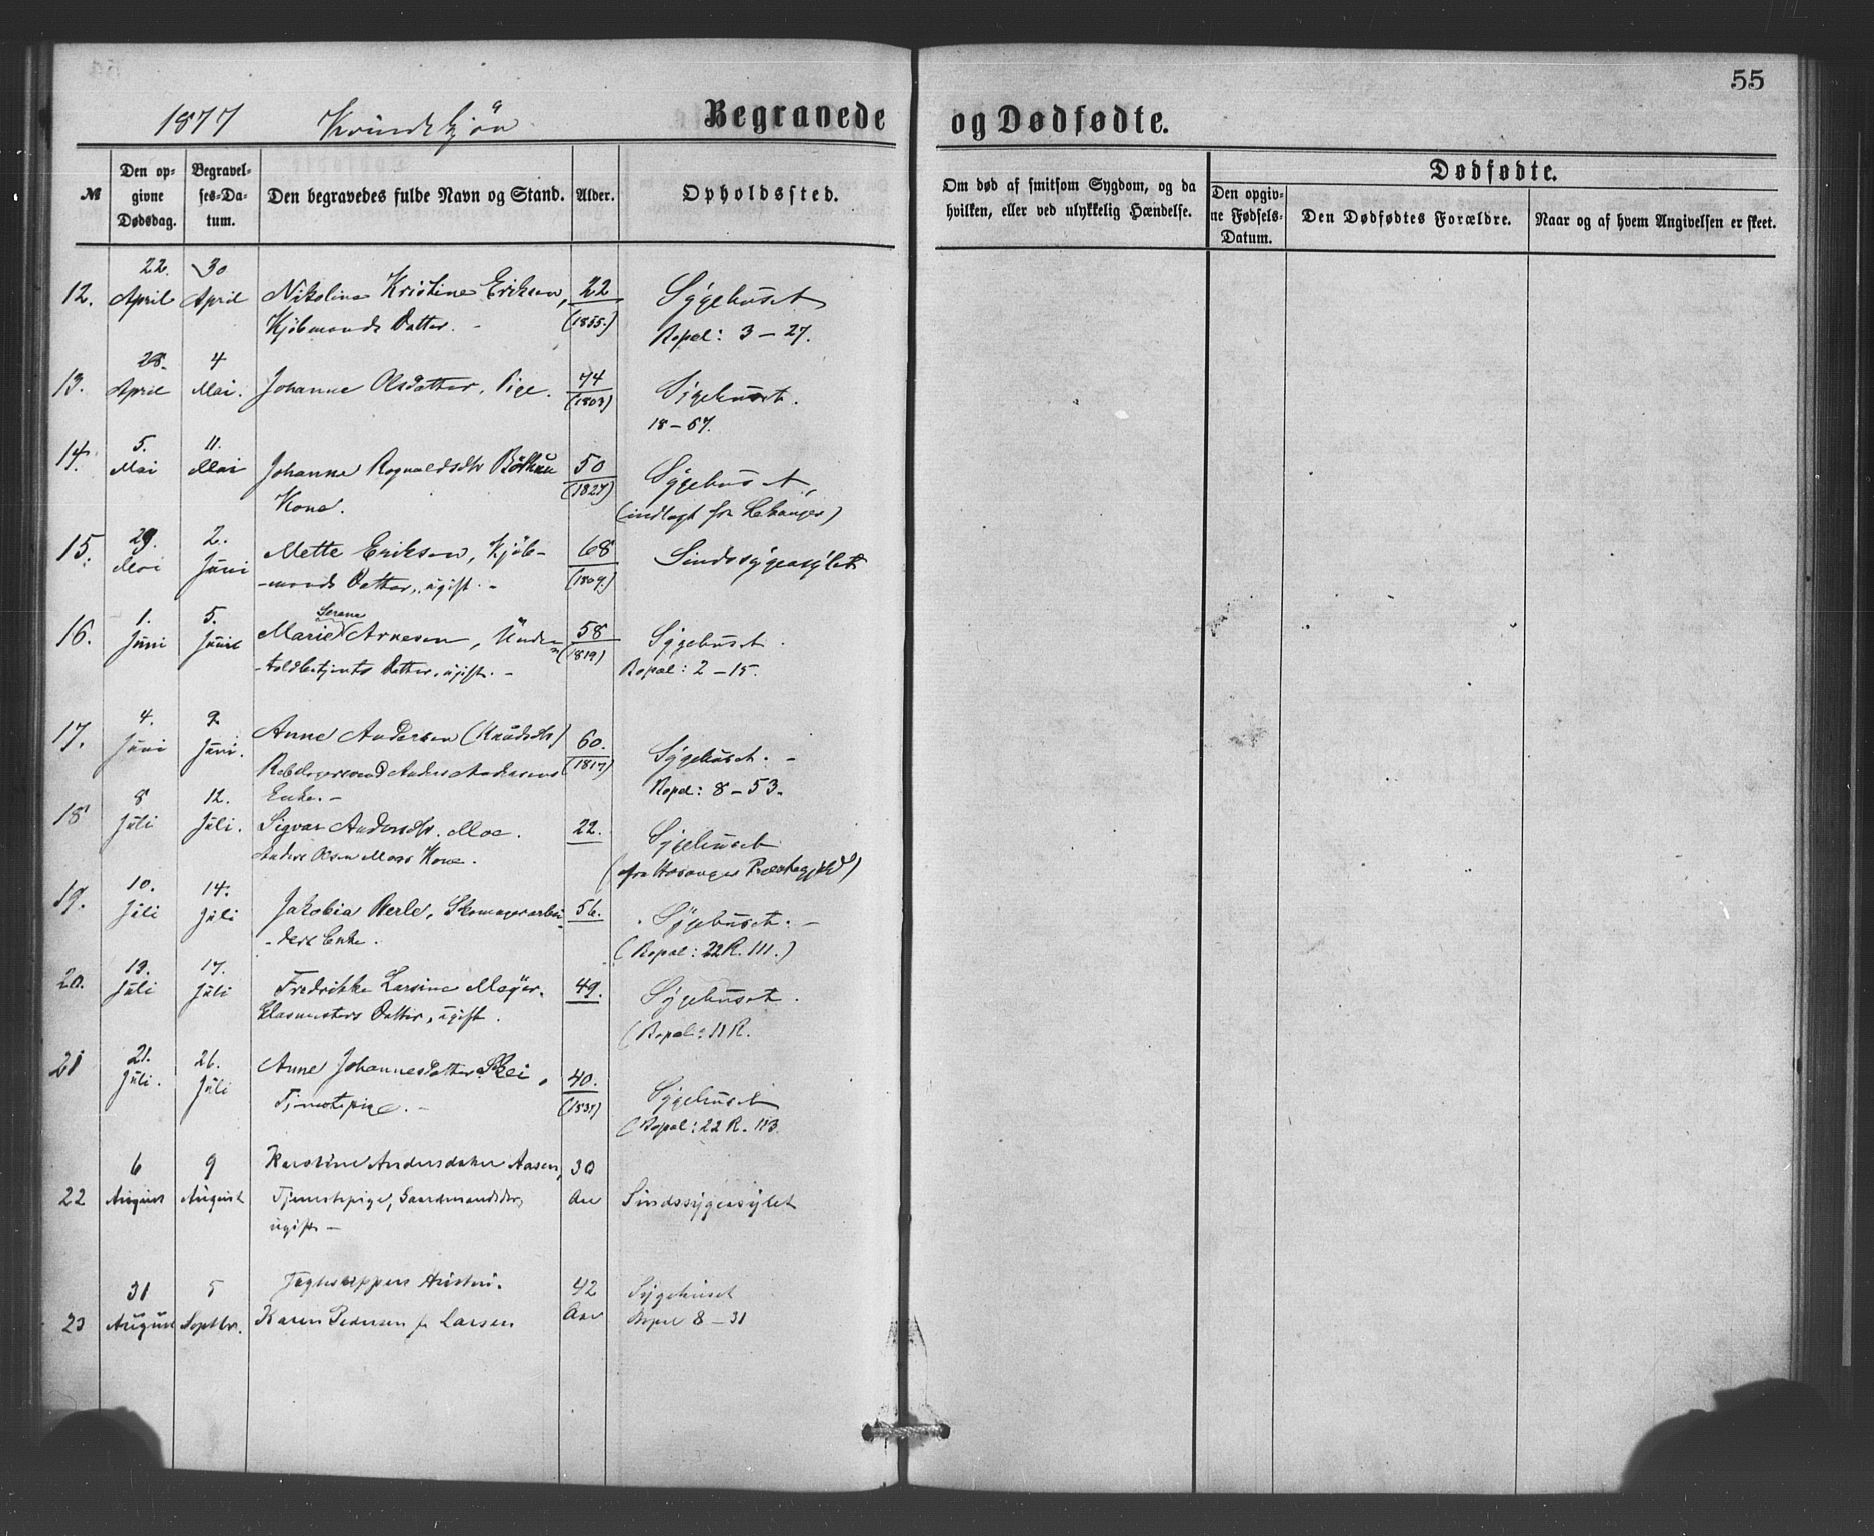 55
1877 Kvindekjøn
Begravede og Dødfødte.
№
Den opgivne Dødsdag.
Begravelses-Datum.
Den begravedes fulde Navn og Stand.
Alder.
Opholdssted.
Om død af smitsom Sygdom, og da hvilken, eller ved ulykkelig Hændelse.
Dødfødte.
Den opgivne Fødsels-Datum.
Den Dødfødtes Forældre.
Naar og af hvem Angivelsen er skeet.
12. 22. April 30 April Nikoline Kristine Eriksen, 22 Sygehuset
Kjøbmands Datter. - (1855.) Ropel: 3 - 27.
13. 28. April 4 Mai. Johanne Olsdatter, Pige. 74 Sygehuset.
(1803) 18 - 57.
14. 5. Mai 11. Mai Johanne Rognaldsdtr 50 Sygehuset,
Kone. (1827) (indlagt fra)
15. 29. Mai 2. Juni Mette Eriksen, Kjøb- 68 Sindssygeasylet
-mands Datter, ugift. - (1809.)
16. 1. Juni 5. Juni Marie Serene Arnesen, Under 58 Sygehuset.
-toldbetjents Datter, ugift. - (1819) Ropel: 2 - 15.
17. 4. Juni 9. Juni. Anne Andersen (Knudsdtr) 60. Sygehuset. -
Anders Andersens (1817) Ropel: 8 - 53.
Enke. -
18 8 Juli 12. Juli. Sigvar Andersdtr. Moe. 22. Sygehuset
Anders Olsen Moes Kone. (fra Hosanger Præstegjeld)
19. 10. Juli 14. Juli Jakobia Perle, Skomagerarbei 56. Sygehuset. -
-ders Enke. (Ropel: 22 R. 111.)
20. 13. Juli 17. Juli Fredrikke Larsine Meyer. 49. Sygehuset.
Glasmesters Datter, ugift. (Ropel: 11 R.
21 21. Juli. 26. Juli Anne Johannesdatter Skei, 40. Sygehuset
Tjenestepige. - (1837) (Ropel: 22 R. 113.
22 6 August 9 August Karoline Andersdatter Aasen, 30 Aar Sindssygeasylet
Tjenestepige, Gaardmandsdtr,
ugift -
31 5 Jagtskippers Hustru. 42 Sygehuset
23 August Septbr. Karen Pedersen f. Larsen Aar Ropel 8 - 31